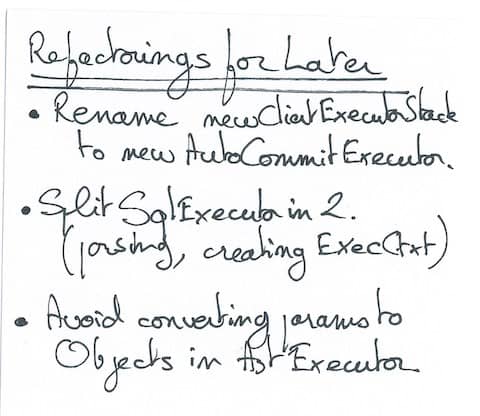 Refactorings for Later
• Rename newClientExecutorStack
to newAutoCommitExecutor.
• Split SqlExecutor in 2.
(parsing, creating ExecCtxt)
• Avoid converting params to
Objects in AstExecutor